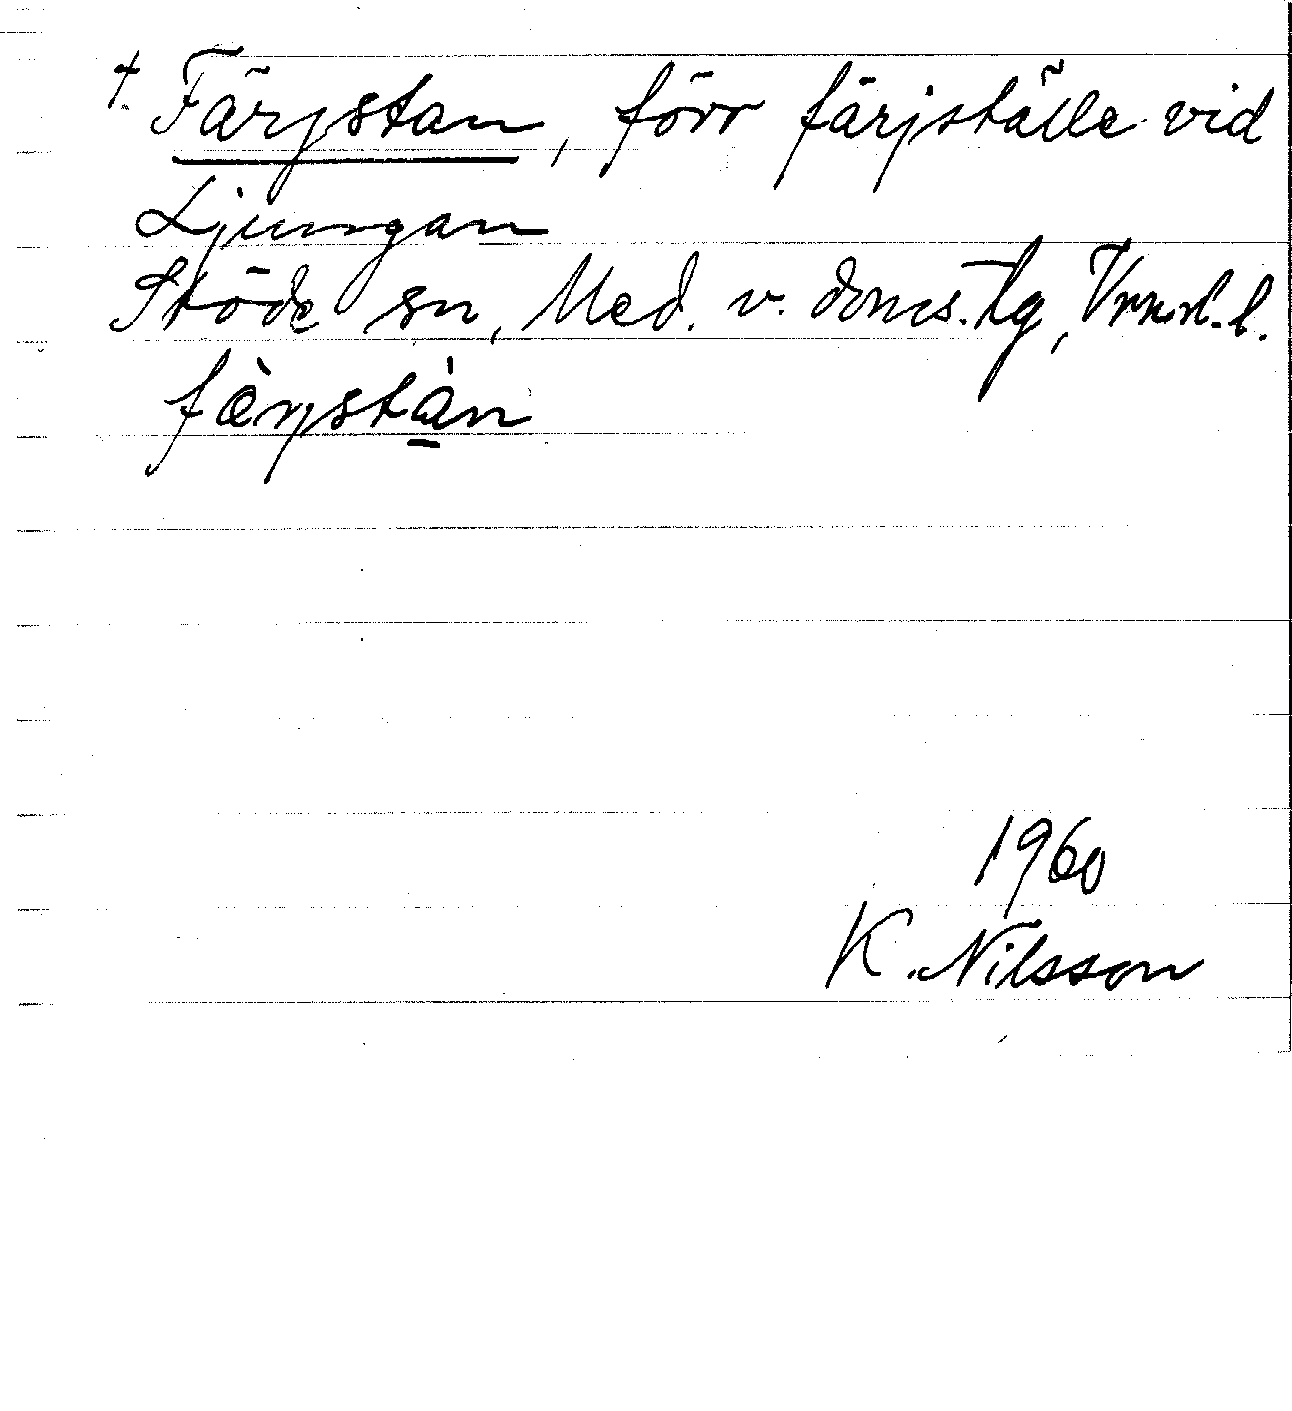 † Färjstan, förr färjställe vid
Ljungan
Stöde sn, Med. v. doms.tg, Vrnrl.l.
färjstàn
1960
K. Nilsson